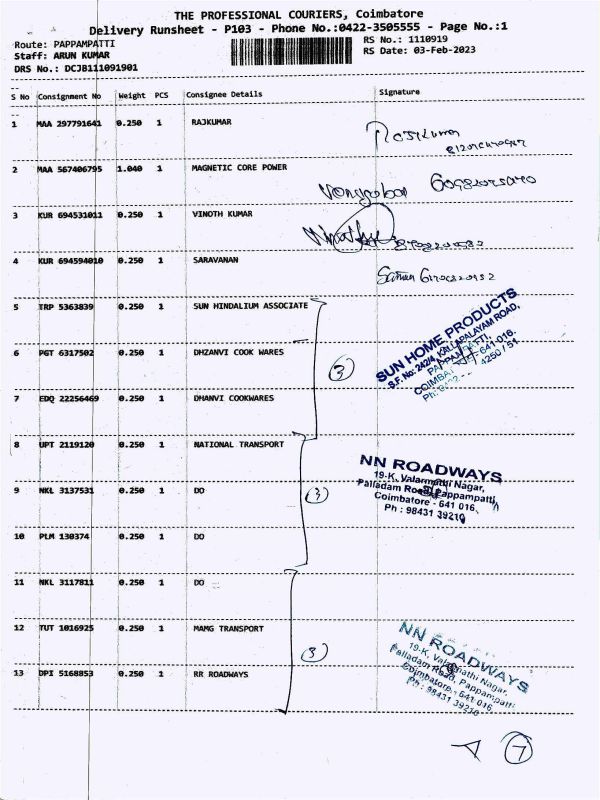 THE PROFESSIONAL COURIERS, Coimbatore
Delivery Runsheet - P103 - Phone No.:0422-3505555 - Page No.:1
Route: PAPPAMPATTI RS No.: 1110919
Staff: ARUN KUMAR RS Date: 03-Feb-2023
DRS No.: DCJB111091901
S No Consignment No Weight PCS Consignee Details Signature
1 MAA 297791641 0.250 1 RAJKUMAR Rajkumar
2 MAA 567406795 1.040 1 MAGNETIC CORE POWER
3 KUR 694531011 0.250 1 VINOTH KUMAR
4 KUR 694594010 0.250 1 SARAVANAN
5 TRP 5363839 0.250 1 SUN HINDALIUM ASSOCIATE
6 PGT 6317502 0.250 1 DHZANVI COOK WARES
7 EDQ 22256469 0.250 1 DHANVI COOKWARES
3
SUN HOME PRODUCTS
S.F. No: 242/4, KALLAPALAYAM ROAD,
PAPPAMPATTI,
641-016.
4250 / 51
8 UPT 2119120 0.250 1 NATIONAL TRANSPORT
9 NKL 3137531 0.250 1 DO
10 PLM 130374 0.250 1 DO
3
NN ROADWAYS
19-K, Valarmathi Nagar,
Palladam Road, Pappampatti,
Coimbatore - 641 016.
Ph : 98431 39210
11 NKL 3117811 0.250 1 DO
12 TUT 1016925 0.250 1 MAMG TRANSPORT
13 DPI 5168853 0.250 1 RR ROADWAYS
3
NN ROADWAYS
19-K, Valarmathi Nagar,
Palladam Road, Pappampatti
Coimbatore - 641 016
Ph : 98431 39210
7